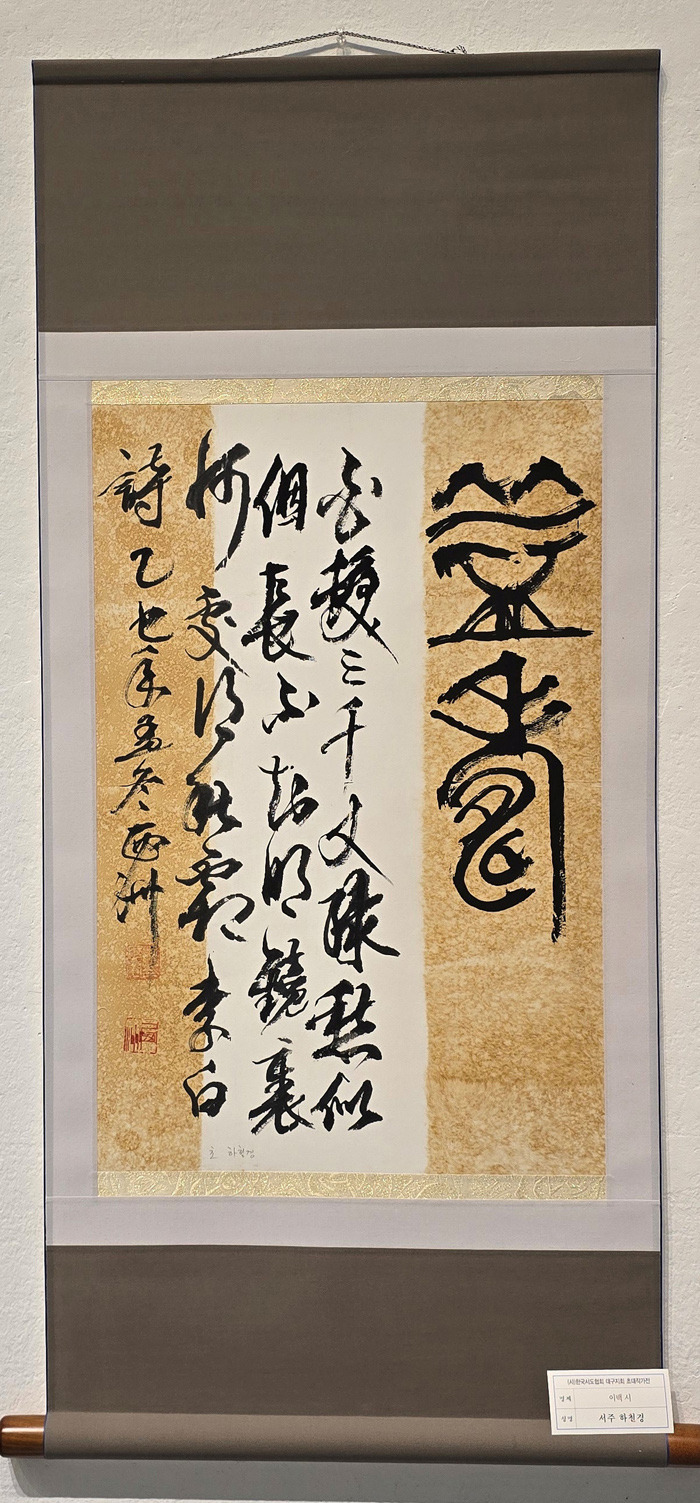 益壽
白髮三千丈緣愁似
個長不知明鏡裏
何處得秋霜 李白
詩 乙巳年孟冬 西洲
초 하철경
(사)한국서도협회 대구지회 초대작가전
명제 이백 시
성명 서주 하철경